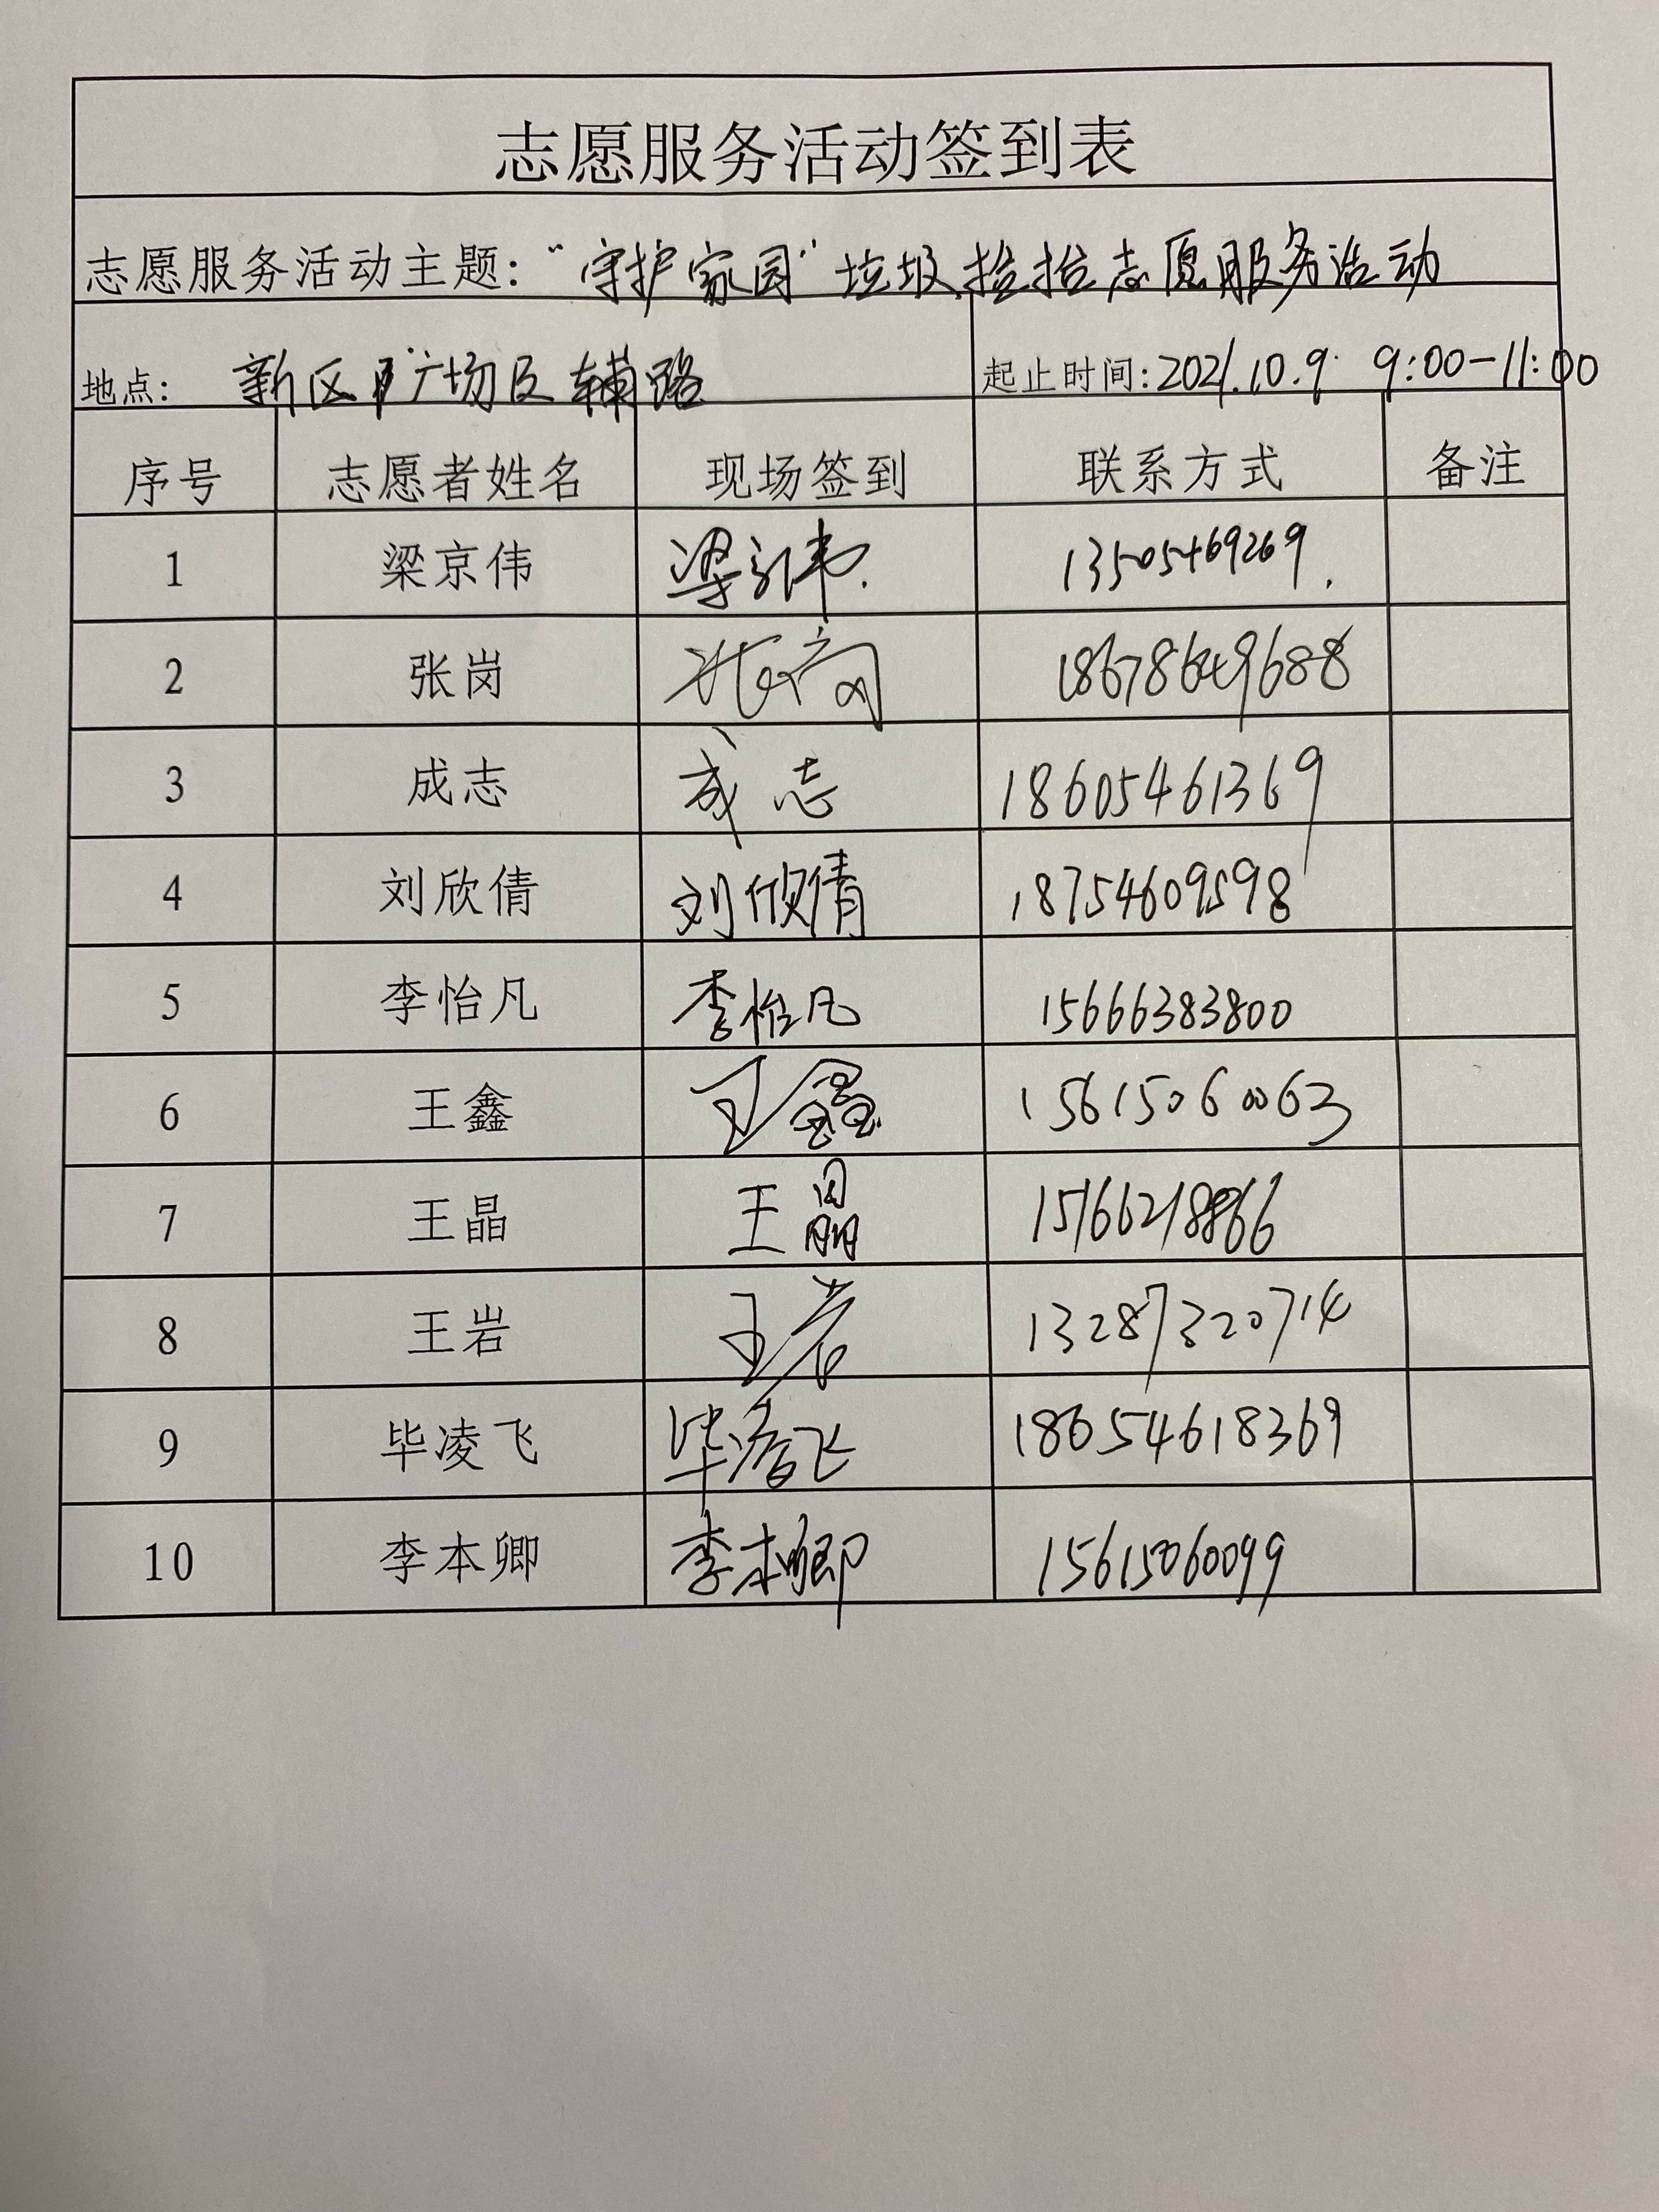 志愿服务活动签到表
志愿服务活动主题："守护家园"垃圾捡拾志愿服务活动
地点： 新区广场及辅路 起止时间：2021.10.9. 9:00-11:00
序号 志愿者姓名 现场签到 联系方式 备注
1 梁京伟 梁京伟. 13505469269.
2 张岗 张岗 18678649688
3 成志 成志 18605461369
4 刘欣倩 刘欣倩 18754609598
5 李怡凡 李怡凡 15666383800
6 王鑫 王鑫 15615060063
7 王晶 王晶 15166218866
8 王岩 王岩 13287320714
9 毕凌飞 毕凌飞 18654618369
10 李本卿 李本卿 15615060099